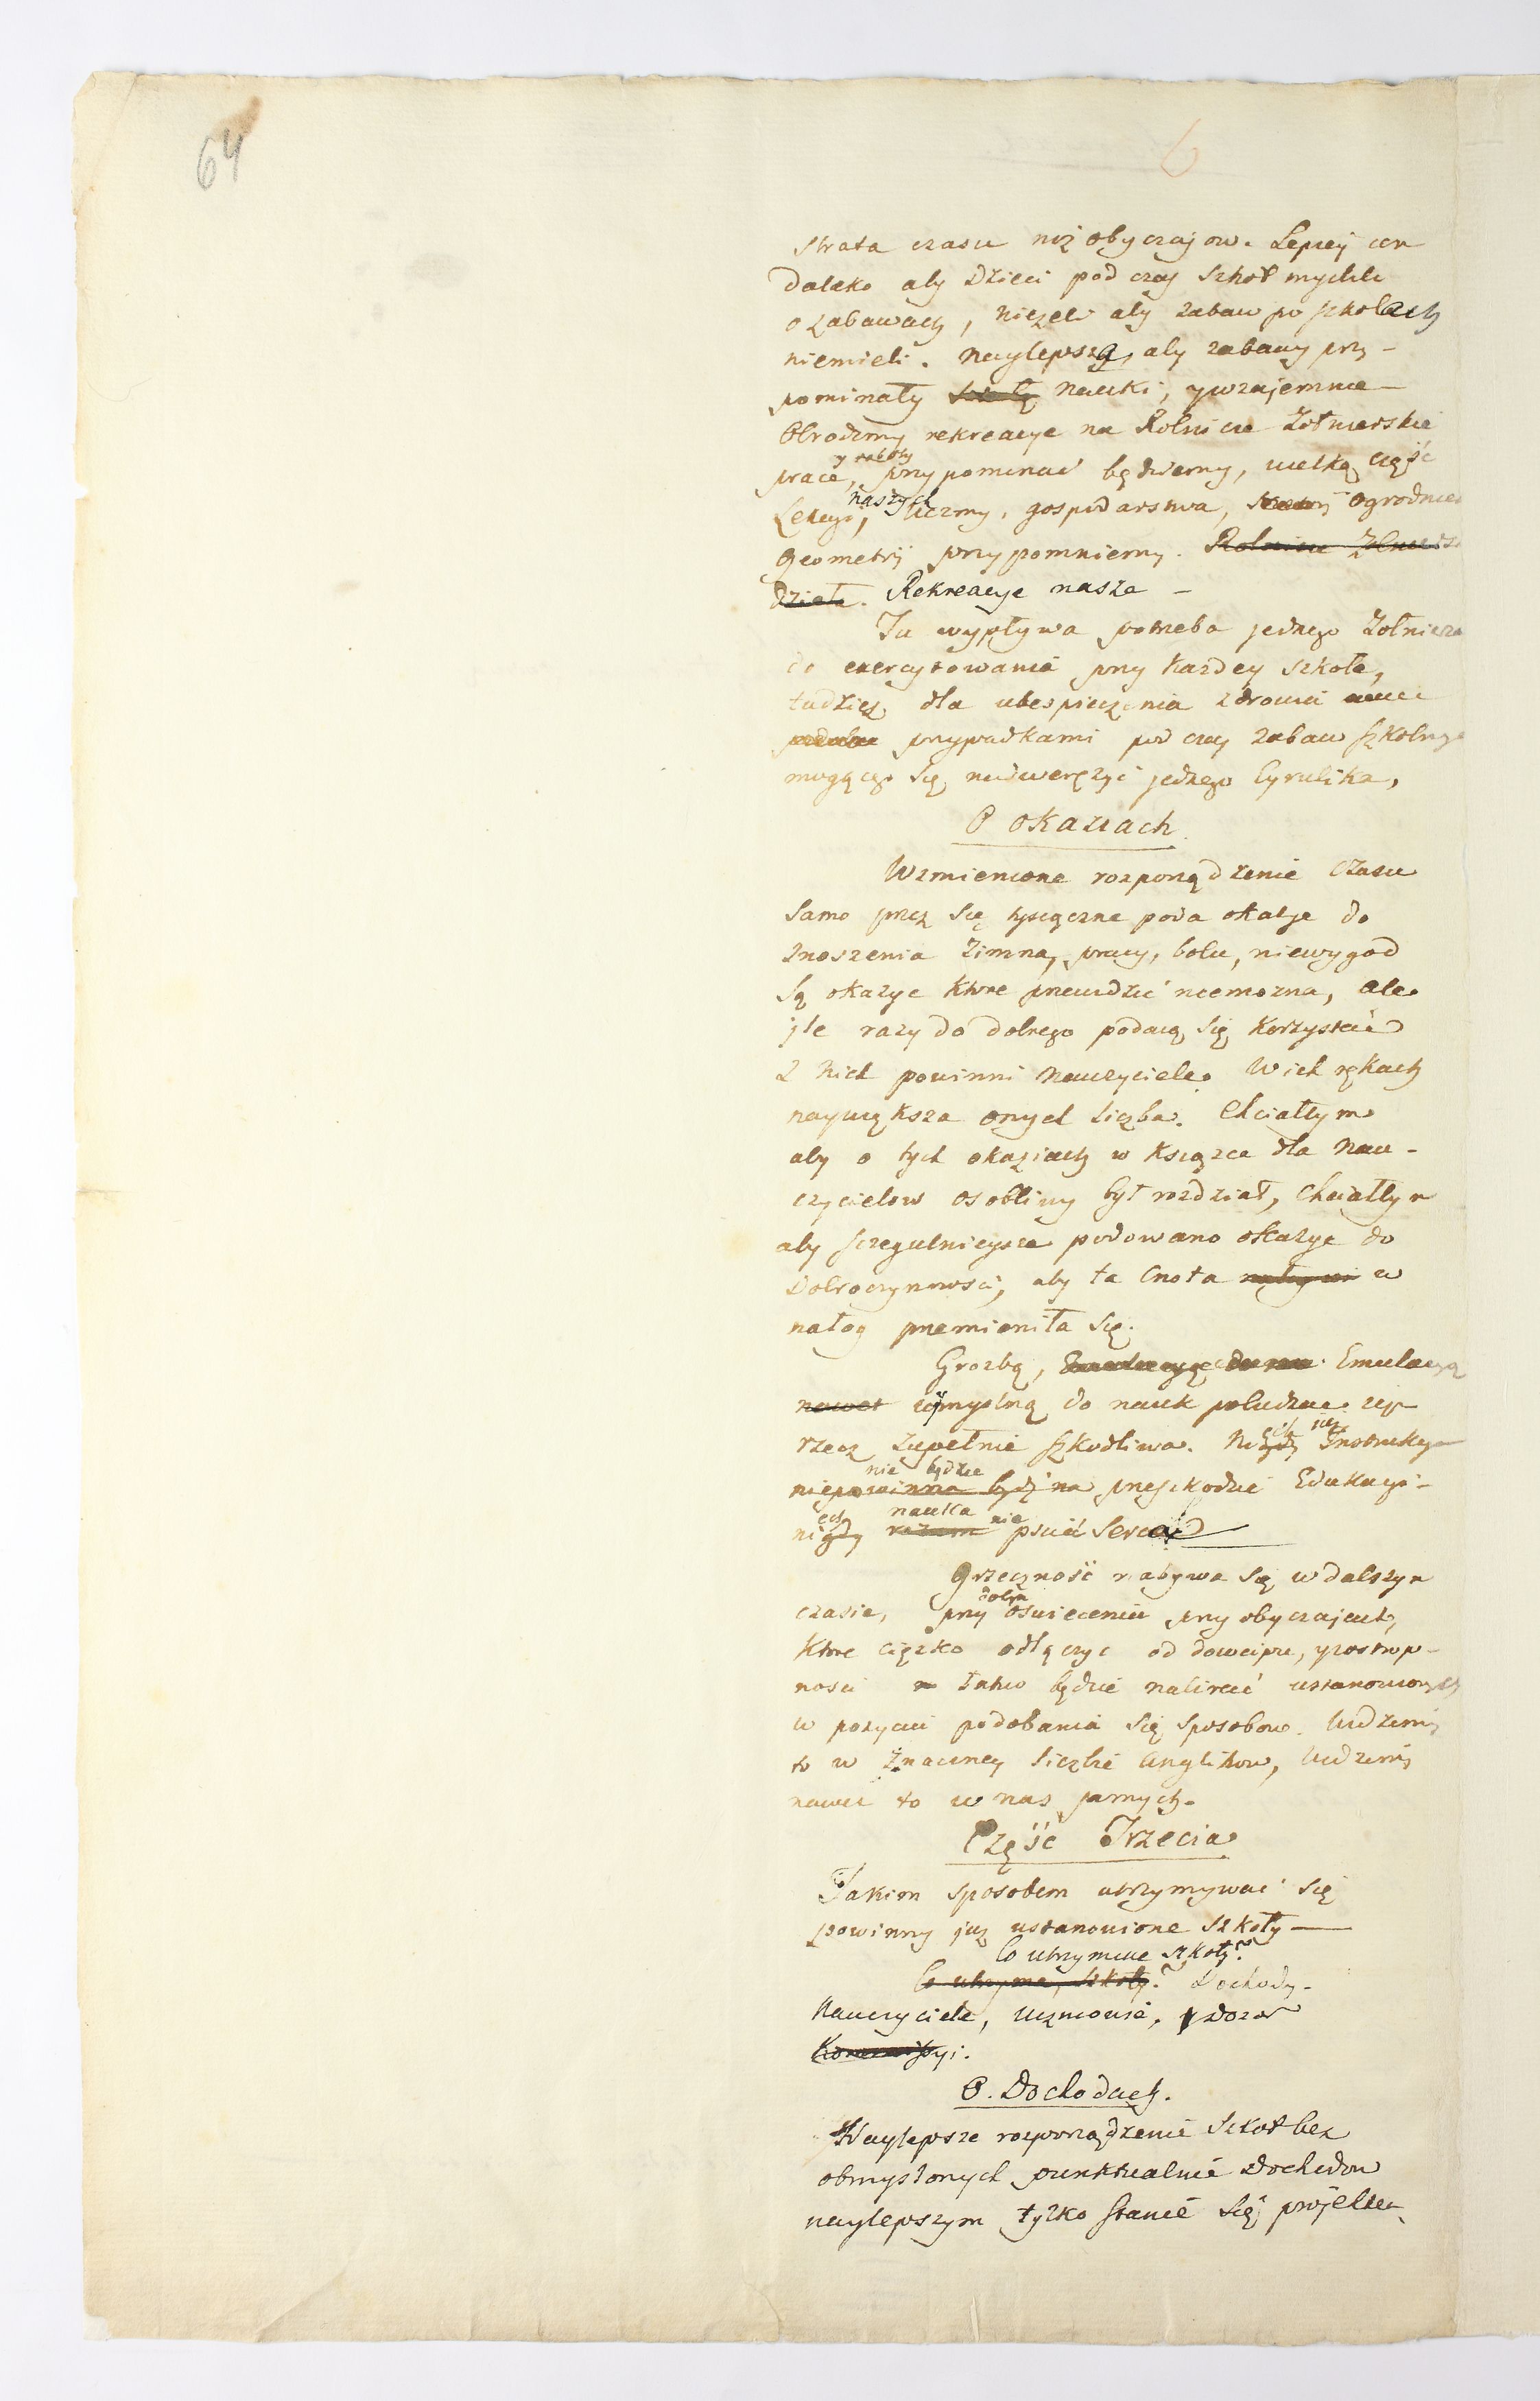 64
6
strata czasu niż obyczajow. Lepiej
daleko aby Dzieci pod czas Szkoł myslili
o zabawach, niżeli aby zabaw po szkolach
niemieli. Naylepsza, aby zabawy przy-
pominały nauki, y wzajemnie
Obrodzmy rekreacye na Rolnicze Zołnierskie
y roboty
prace, przypominac będziemy, wielką częsć
naszych
Lekcyi, uczmy, gospodarstwa, ogrodnic
geometrij przypomniemy. Rolnicze
dzieła. Rekreacye nasze –
Tu wypływa potrzeba jednego Zołnierza
do exercytowania przy każdey szkole,
tudzież dla ubespieczenia zdrowia
przypadkami pod czas zabaw szkolnych
mogącego się nadwerężyć jednego Cyrulika,
O okaziach
Wzmienione rozporządzenie czasu
samo przez się tysiączne poda okazye do
znoszenia zimna, pracy, bolu, niewygod
Są okazye ktore przewidzieć niemożna, ale
ile razy do dobrego podadzą się korzystać
z nich powinni Nauczyciele. W ich rękach
naywiększa onych liczba. Chciałbym
aby o tych okaziach w Książce dla Nau-
czycielow osobliwy był rozdział, Chciałbym
aby szczegulnieysze podowano okazye do
Dobroczynnosci, aby ta Cnota w
nałog przemieniła się.
Grozbą, Emulacyą
nawet wymyslną do nauk pobudzac jest
rzecz zupełnie szkodliwa. Instrukcya
nie będzie
niepowinna bydź na przeszkodzie Edukacyi –
nauka nie
nigdy rozum psuić Serca
Grzeczność nabywa się w dalszym
dobrym
czasie, przy oswieceniu przy obyczajach,
ktore ciężko odłączyc od dowcipu, y roztrop-
nosci łatwo będzie nabierać ustanowionych
w pożyciu podobania się sposobow. Widzimy
to w znaczney liczbie Anglikow, Widzimy
nawet to w nas samych.
Część Trzecia
Jakim sposobem utrzymywać się
powinny już ustanowione szkoły —
Co utrzymuie szkoły?
Co utrzyma szkoły? Dochody.
Nauczyciele, uczniowie, y Dozor
Kommissyi.
O. Dochodach.
Naylepsze rozporządzenie Szkoł bez
obmyslonych punktualnie Dochodow
naylepszym tylko stanie się projektem